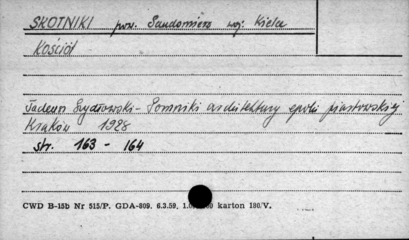 SKOTNIKI pow. Sandomierz woj. Kielce
Kościół
Tadeusz Szydłowski - Pomniki architektury epoki piastowskiej
Kraków 1928
str. 163 - 164
CWD B-15b Nr 515/P. GDA-809. 6.3.59. karton 180/V.